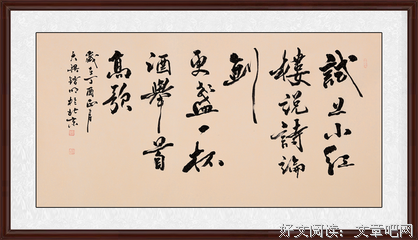 試且小紅
樓說詩論
劍
更盡一杯
酒舉首
高歌
歲在丁酉正月
於北京
好文阅读：文章吧网